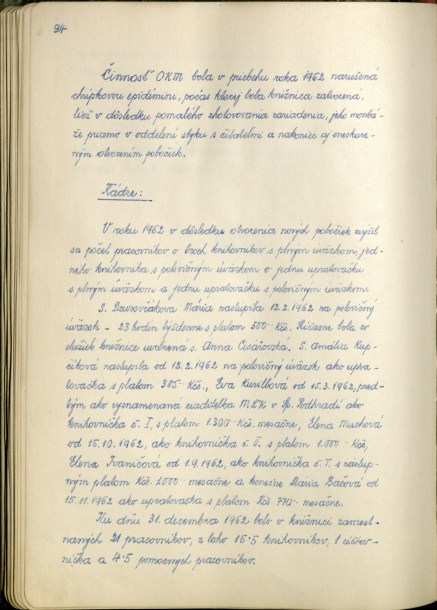 94
Činnosť OKM bola v priebehu roka 1962 narušená
chrípkovou epidémiou, počas ktorej bola knižnica zatvorená,
tiež v dôsledku pomalého zhotovovania zariadenia, jeho montá-
že priamo v oddelení styku s čitateľmi a nakoniec aj oneskore-
ným otvorením pobočiek.
Kádre:
V roku 1962 v dôsledku otvorenia nových pobočiek zvýšil
sa počet pracovníkov o troch knihovníkov s plným úväzkom, jed-
neho knihovníka s polovičným úväzkom o jednu upratovačku
s plným úväzkom a jednu upratovačku s polovičným úväzkom.
S. Mária nastúpila 12.2.1962 na polovičný
úväzok - 23 hodín týždenne s platom 500 Kčs. Súčasne bola zo
služieb knižnice uvoľnená s. Anna Cesárovská, S. Amália Kup-
číková nastúpila od 12.2.1962 na polovičný úväzok ako upra-
tovačka s platom 385 Kčs., Eva Kurillová od 15.3.1962, pred-
tým ako vyznamenaná riaditeľka MĽK v Sp. Podhradí ako
knihovníčka s platom 1.300 Kčs. mesačne, Elena Muchová
od 15.10.1962, ako knihovníčka s platom 1.000 - Kčs,
Elena Ivaničová od 1.9.1962, ako knihovníčka s nástup-
ným platom Kčs. 1000 - mesačne a konečne Mária Bačová od
15.11.1962 ako upratovačka s platom Kčs. 770 - mesačne.
Ku dňu 31. decembra 1962 bolo v knižnici zamest-
naných 21 pracovníkov, z toho 16.5 knihovníkov, 1 účtov-
níčka a 4.5 pomocných pracovníkov.